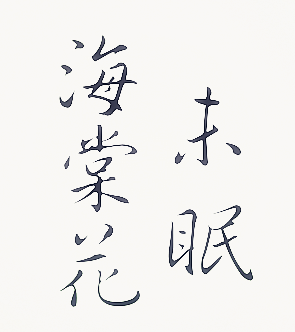 海棠花
未眠